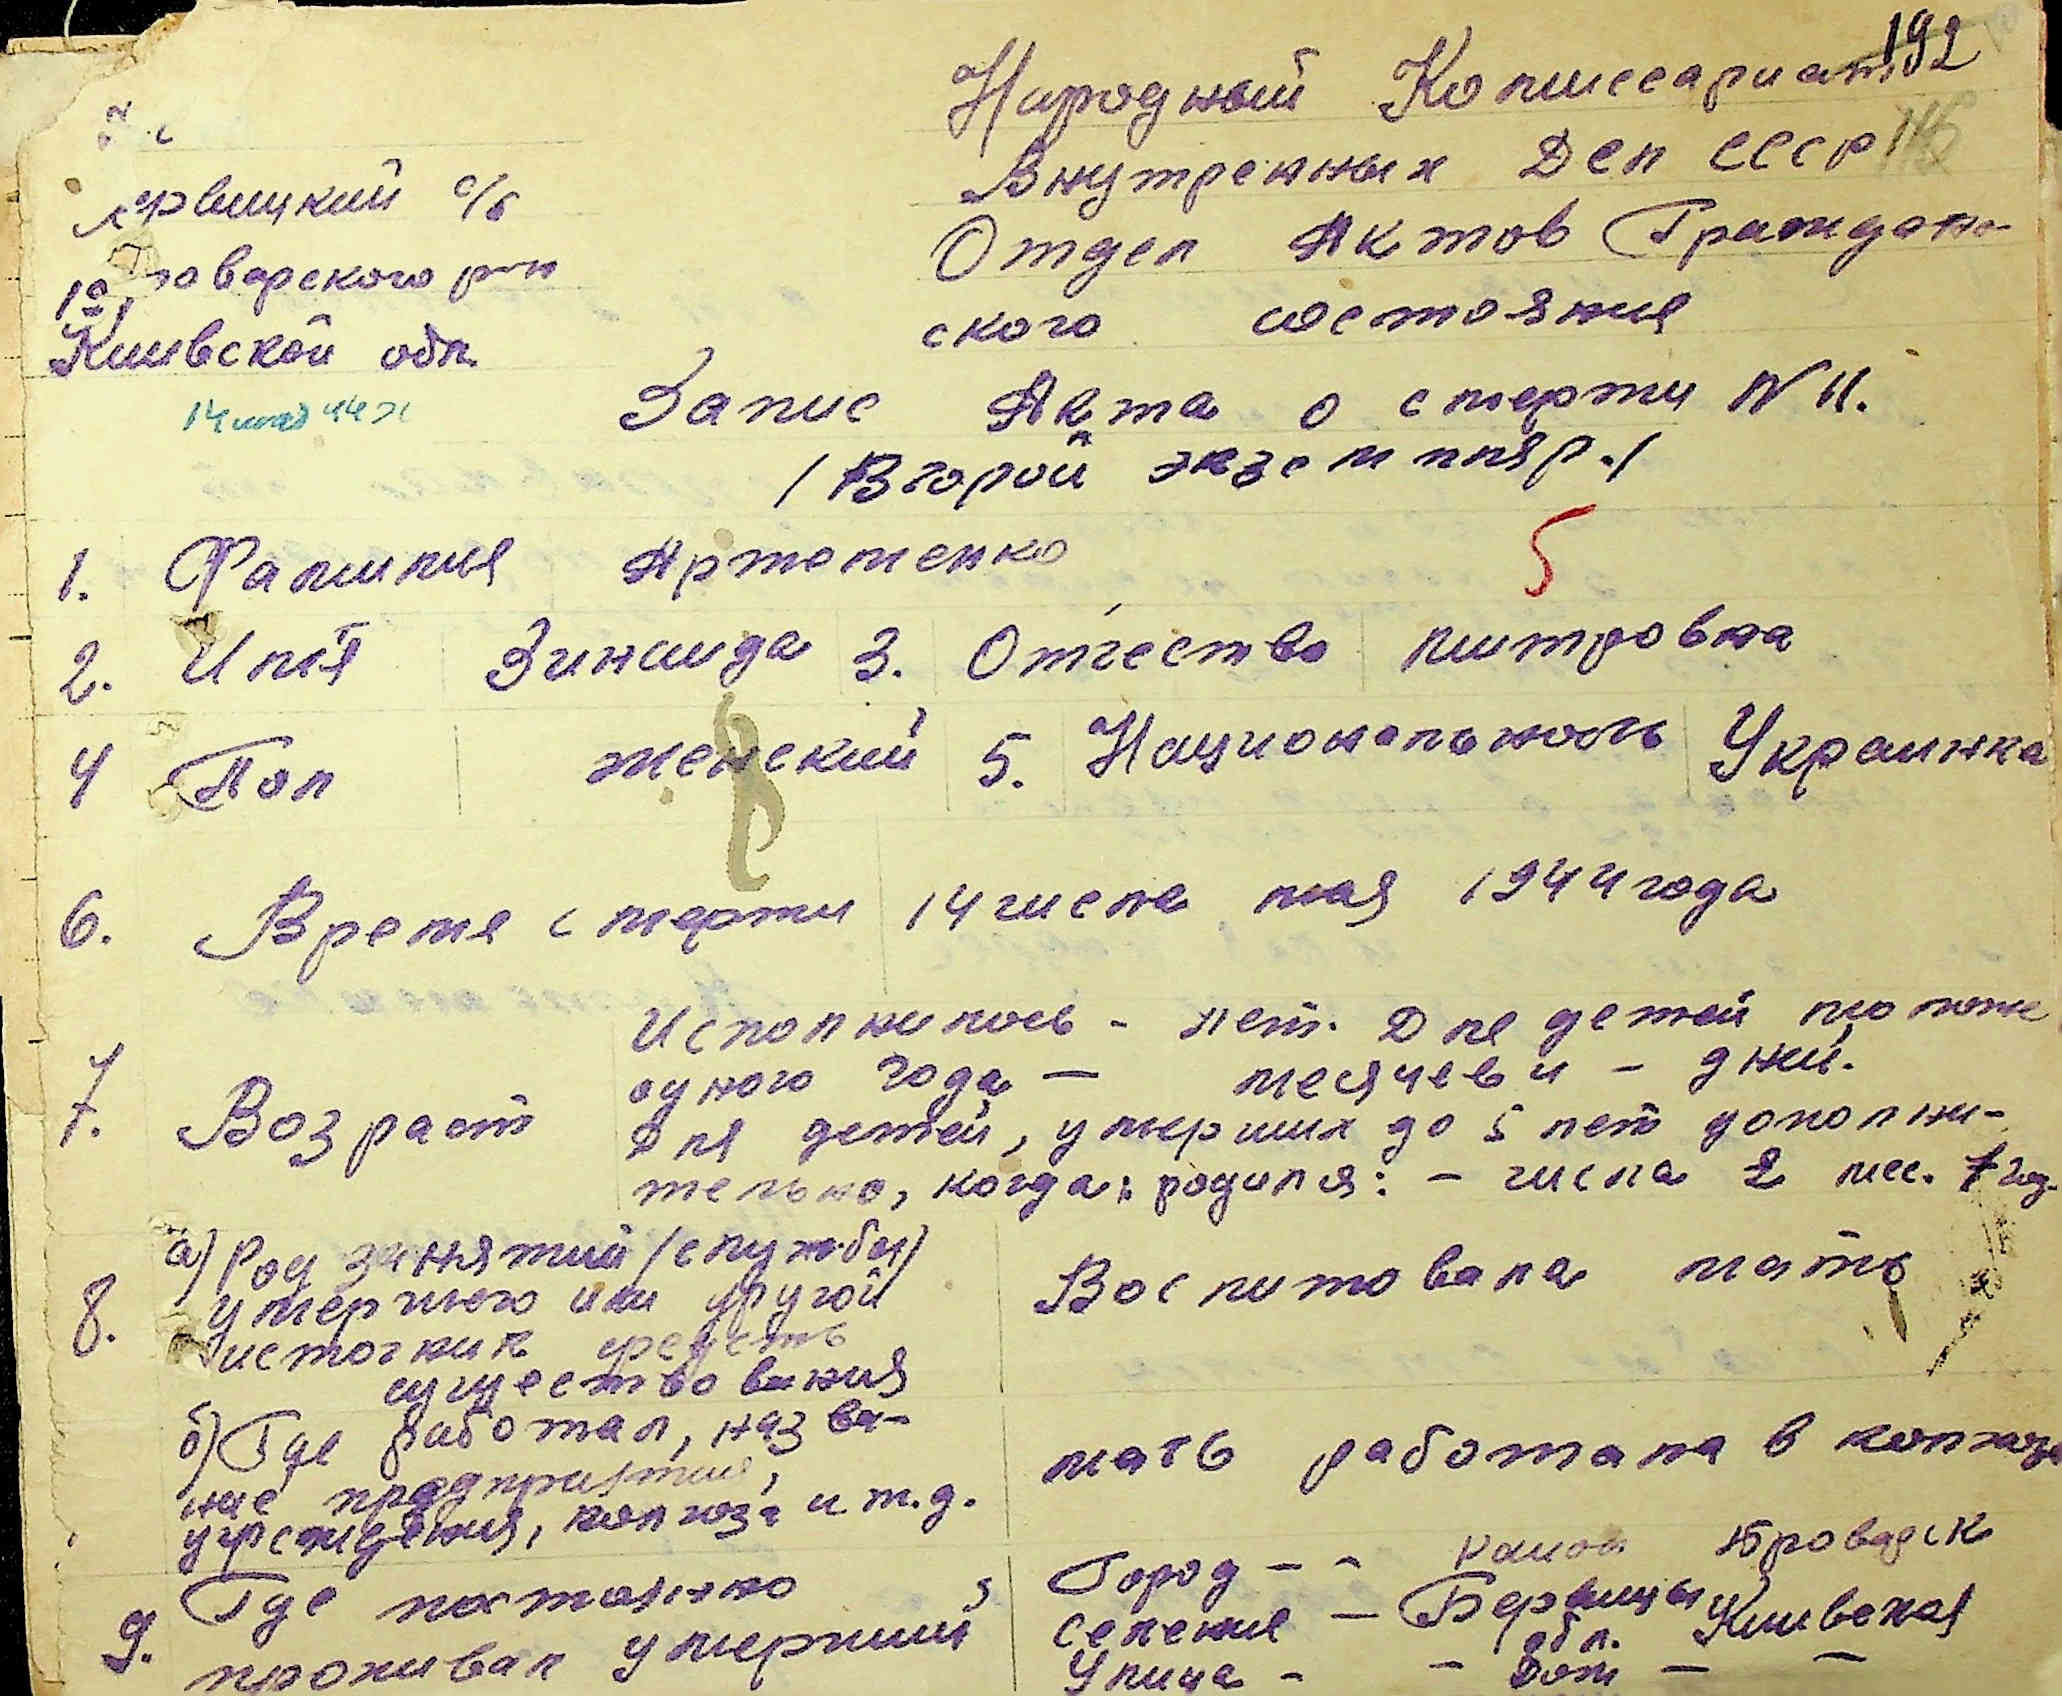 192
Народный Комиссариат
Внутренных Дел СССР
Отдел Актов Граждан-
ского состояния
ервицкий с/б
оварского р-н
Киивской обл.
14 мая 44 г
Запис Акта о смерти N 11.
/ Второй экземпляр. /
5
1. Фамилия Артоменко
2. Имʼя Зинаида 3. Отчество митровна
4 Пол женский 5. Национальность Украинка
6. Время смерти 14 числа мая 1944 года
7. Возраст
Исполнилось - лет. Для детей моложе
одного года — месяцев и - дней.
Для детей, умерших до 5 лет дополни-
тельно, когда родился: - числа 2 мес. год.
8. а) Род занятий / службы /
умершего или другой
источник средств
существования
Воспитовала мать
б) Где работал, назва-
ние предприятия,
учреждения, колхоза и т.д.
мать работала в колхозе
9. Где постоянно
проживал умерший
Город - - район Броварск
селение — Бервицы Киивская
обл.
Улица - - Дом — —